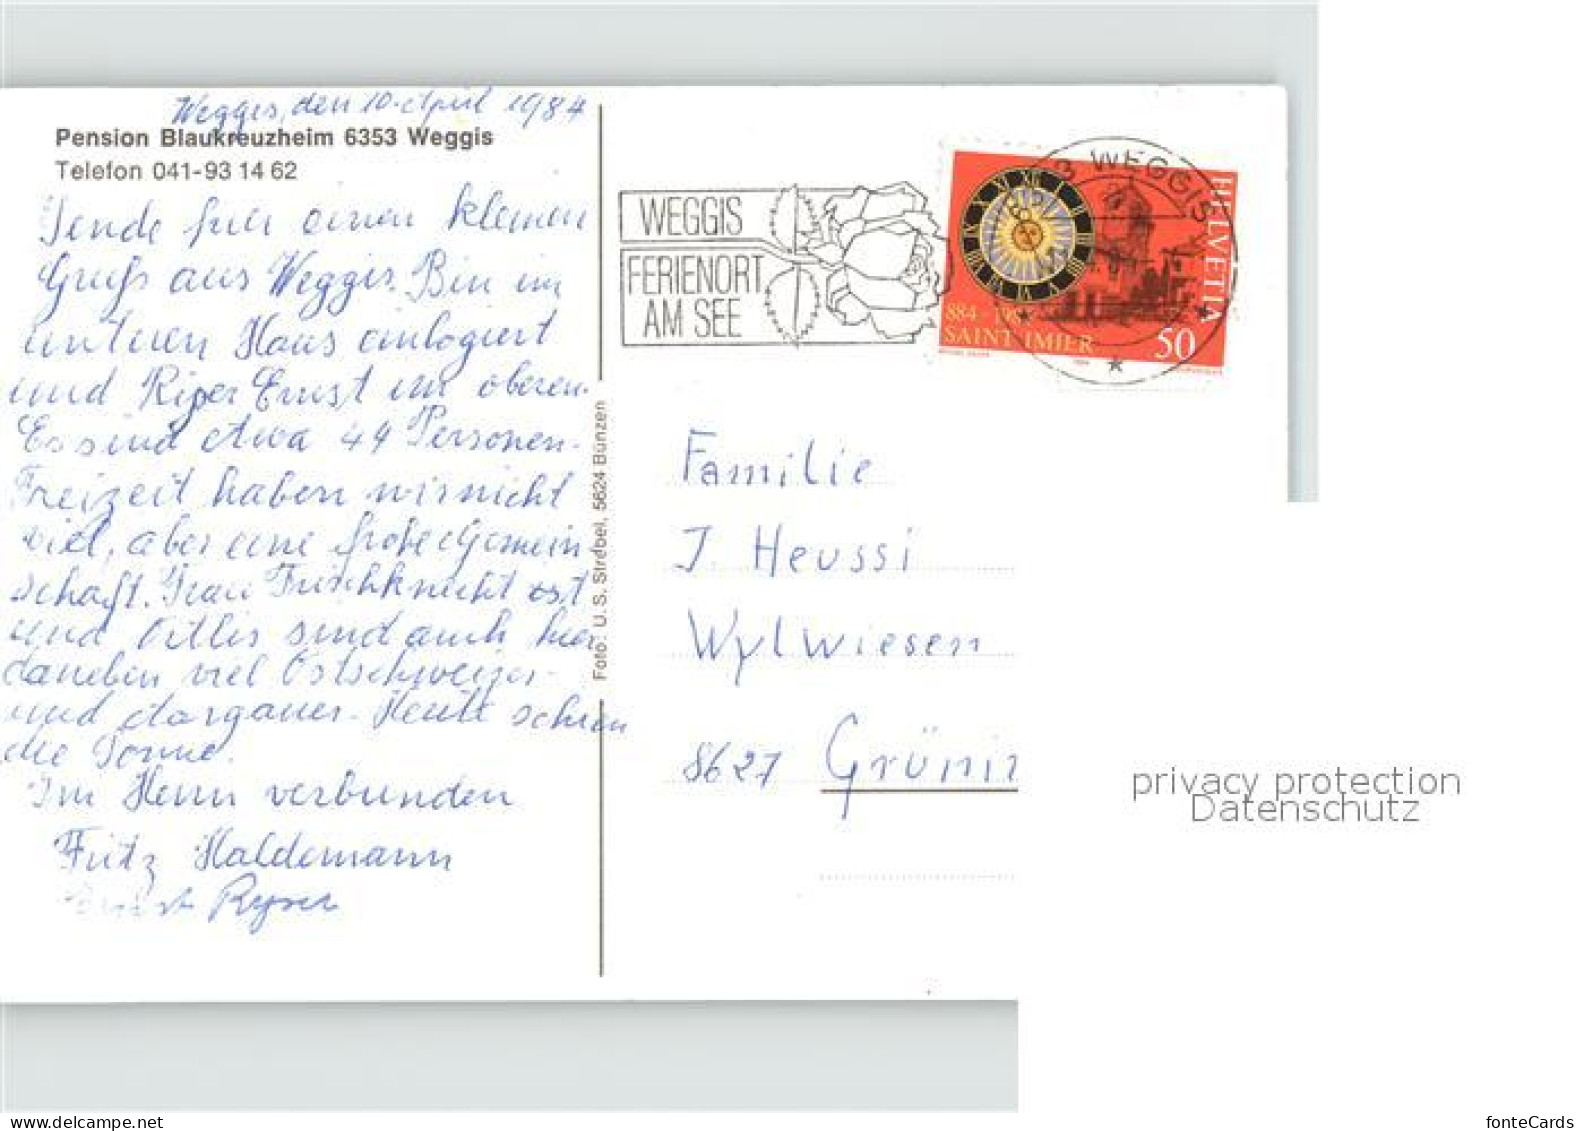 Weggis, den 10. April 1984
Pension Blaukreuzheim 6353 Weggis
Telefon 041-93 14 62
Sende hier einen kleinen
Gruß aus Weggis. Bin im
unteren Haus einlogiert
und Ryser Ernst im oberen.
Es sind etwa 44 Personen.
Freizeit haben wir nicht
viel, aber eine frohe Gemein
schaft. Frau Frischknecht ist
und sind auch hier
daneben viel Ostschweizer-
und Aargauer. Heute schien
die Sonne.
Im Herrn verbunden
Fritz Haldemann
Ernst Ryser
Foto: U. S. Strebel, 5624 Bünzen
WEGGIS
FERIENORT
AM SEE
3 WEGGIS
HELVETIA
884 - 19
SAINT-IMIER
50
Familie
J. Heussi
Wylwiesen
8627 Grünin
privacy protection
Datenschutz
fonteCards